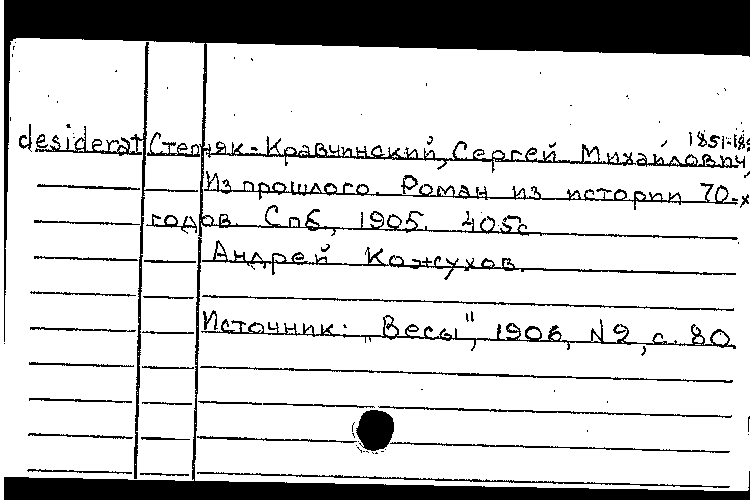 1851-189
desiderat Степняк-Кравчинский, Сергей Михайлович,
Из прошлого. Роман из истории 70-х
годов. Спб, 1905. 405с
Андрей Кожухов.
Источник: „Весы", 1906, N2, с. 80.